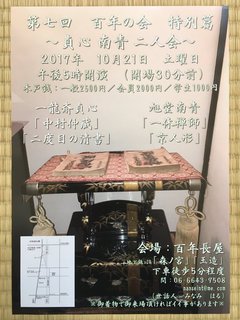 第七回 百年の会 特別篇
～貞心 南青 二人会～
2017年 10月21日 土曜日
午後5時開演 (開場30分前)
木戸銭:一般2500円/会員2000円/学生1000円
一龍斎貞心
「中村仲蔵」
「二度目の清書」
旭堂南青
「一休禅師」
「京人形」
会場:百年長屋
「森ノ宮」「玉造」
下車徒歩5分程度
問:06 6643 7508
(世話人 みなみ はる)
※御着物で御来場頂ければイイ事があります※